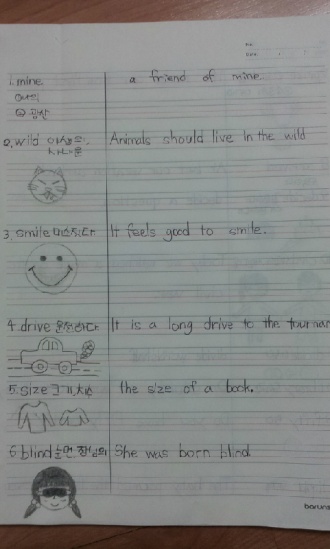 1. mine.
a friend of mine.
① 나의
② 광산
2. wild 야생의,
Animals should live in the wild
3. smile 미소짓다
It feels good to smile.
4 drive 운전하다
It is a long drive to the tournam
5. size 크기, 치수
the size of a book.
6 blind 눈먼, 장님의
She was born blind